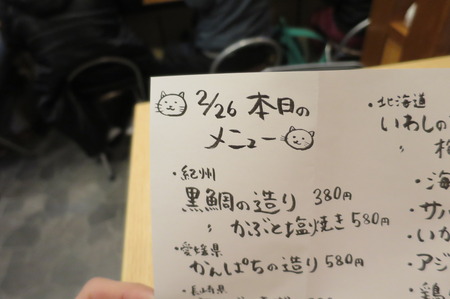 2/26 本日の
メニュー
・紀州
黒鯛の造り 380円
〃 かぶと塩焼き 580円
・愛媛県
かんぱちの造り 580円
・北海道
いわしの
〃
・海
・サバ
・いか
・アジ
・鶏